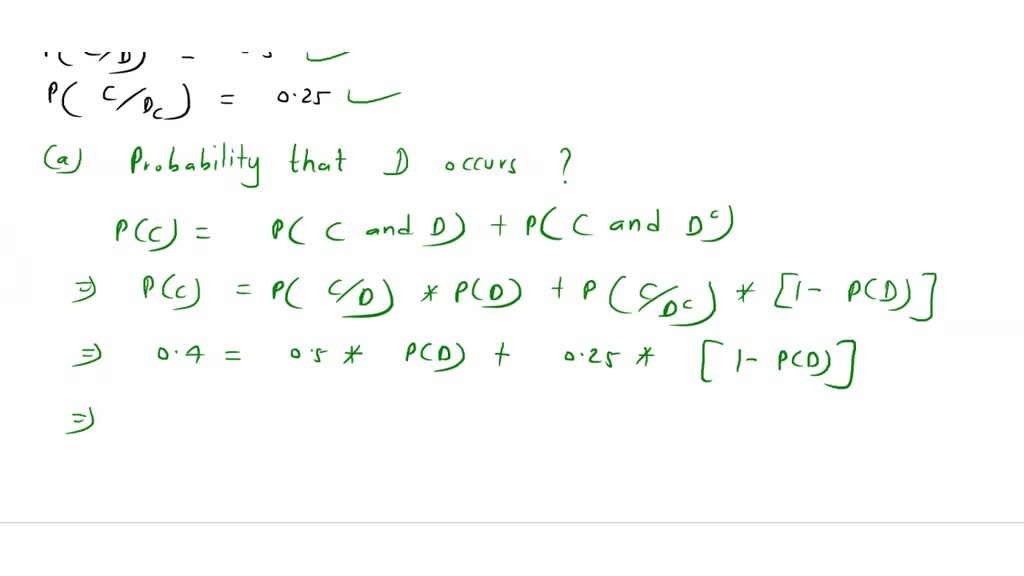 P( C/Dc) = 0.25
(a) Probability that D occurs ?
P(C) = P( C and D) + P( C and Dᶜ)
⇒ P(C) = P( C/D) * P(D) + P( C/Dᶜ) * [1- P(D)]
⇒ 0.4 = 0.5 * P(D) + 0.25 * [1- P(D)]
⇒